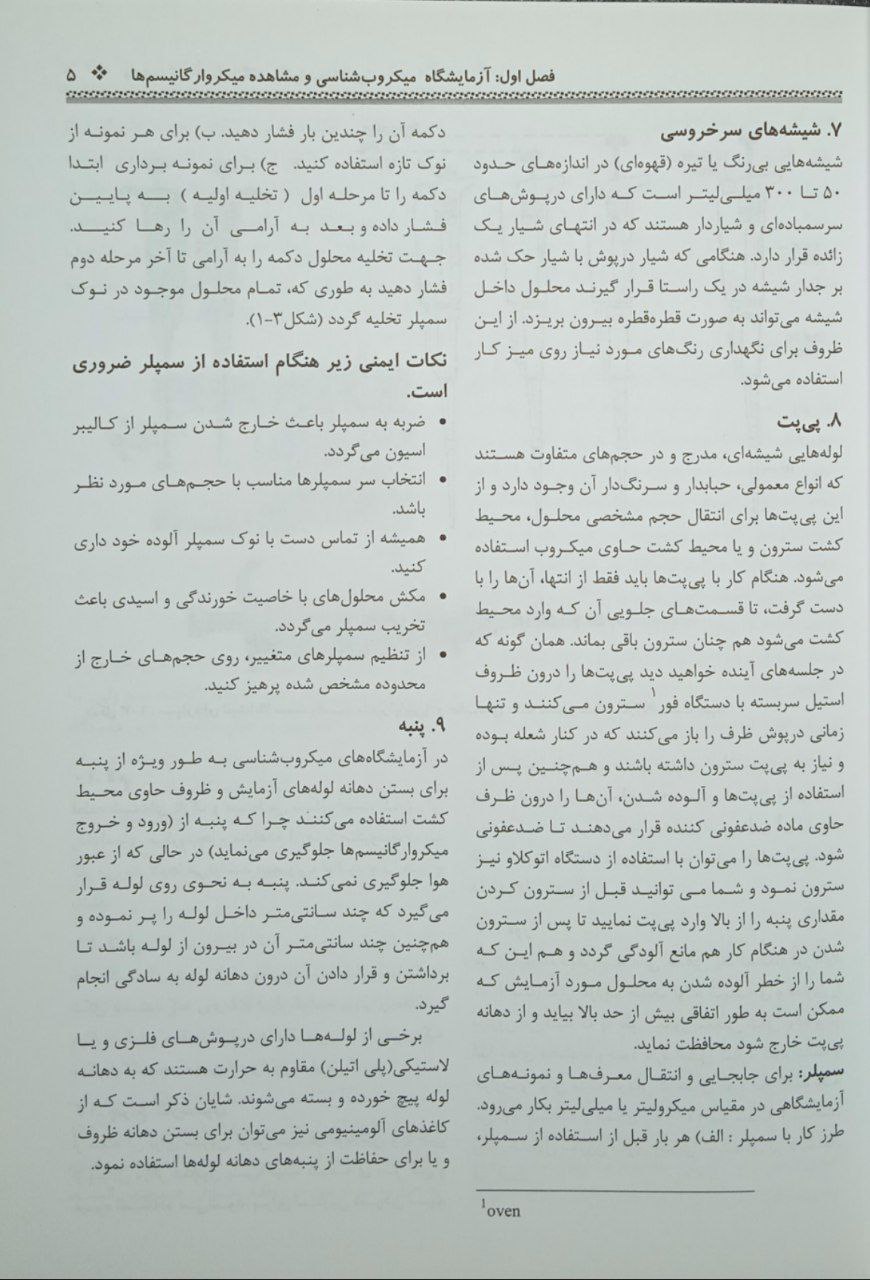 فصل اول: آزمایشگاه میکروب‌شناسی و مشاهده میکروارگانیسم‌ها ❖ ۵
۷. شیشه‌های سرخروسی
شیشه‌هایی بی‌رنگ یا تیره (قهوه‌ای) در اندازه‌های حدود
۵۰ تا ۳۰۰ میلی‌لیتر است که دارای درپوش‌های
سرسمباده‌ای و شیاردار هستند که در انتهای شیار یک
زائده قرار دارد. هنگامی که شیار درپوش با شیار حک شده
بر جدار شیشه در یک راستا قرار گیرند محلول داخل
شیشه می‌تواند به صورت قطره‌قطره بیرون بریزد. از این
ظروف برای نگهداری رنگ‌های مورد نیاز روی میز کار
استفاده می‌شود.
۸. پی‌پت
لوله‌هایی شیشه‌ای، مدرج و در حجم‌های متفاوت هستند
که انواع معمولی، حبابدار و سرنگ‌دار آن وجود دارد و از
این پی‌پت‌ها برای انتقال حجم مشخصی محلول، محیط
کشت سترون و یا محیط کشت حاوی میکروب استفاده
می‌شود. هنگام کار با پی‌پت‌ها باید فقط از انتها، آن‌ها را با
دست گرفت، تا قسمت‌های جلویی آن که وارد محیط
کشت می‌شود هم چنان سترون باقی بماند. همان گونه که
در جلسه‌های آینده خواهید دید پی‌پت‌ها را درون ظروف
استیل سربسته با دستگاه فور¹ سترون می‌کنند و تنها
زمانی درپوش ظرف را باز می‌کنند که در کنار شعله بوده
و نیاز به پی‌پت سترون داشته باشند و هم‌چنین پس از
استفاده از پی‌پت‌ها و آلوده شدن، آن‌ها را درون ظرف
حاوی ماده ضدعفونی کننده قرار می‌دهند تا ضدعفونی
شود. پی‌پت‌ها را می‌توان با استفاده از دستگاه اتوکلاو نیز
سترون نمود و شما می توانید قبل از سترون کردن
مقداری پنبه را از بالا وارد پی‌پت نمایید تا پس از سترون
شدن در هنگام کار هم مانع آلودگی گردد و هم این که
شما را از خطر آلوده شدن به محلول مورد آزمایش که
ممکن است به طور اتفاقی بیش از حد بالا بیاید و از دهانه
پی‌پت خارج شود محافظت نماید.
سمپلر: برای جابجایی و انتقال معرف‌ها و نمونه‌های
آزمایشگاهی در مقیاس میکرولیتر یا میلی‌لیتر بکار می‌رود.
طرز کار با سمپلر : الف) هر بار قبل از استفاده از سمپلر،
¹oven
دکمه آن را چندین بار فشار دهید. ب) برای هر نمونه از
نوک تازه استفاده کنید. ج) برای نمونه برداری ابتدا
دکمه را تا مرحله اول ( تخلیه اولیه ) به پایین
فشار داده و بعد به آرامی آن را رها کنید.
جهت تخلیه محلول دکمه را به آرامی تا آخر مرحله دوم
فشار دهید به طوری که، تمام محلول موجود در نوک
سمپلر تخلیه گردد (شکل۳-۱).
نکات ایمنی زیر هنگام استفاده از سمپلر ضروری
است.
• ضربه به سمپلر باعث خارج شدن سمپلر از کالیبر
اسیون می‌گردد.
• انتخاب سر سمپلرها مناسب با حجم‌های مورد نظر
باشد.
• همیشه از تماس دست با نوک سمپلر آلوده خود داری
کنید.
• مکش محلول‌های با خاصیت خورندگی و اسیدی باعث
تخریب سمپلر می‌گردد.
• از تنظیم سمپلرهای متغییر، روی حجم‌های خارج از
محدوده مشخص شده پرهیز کنید.
۹. پنبه
در آزمایشگاه‌های میکروب‌شناسی به طور ویژه از پنبه
برای بستن دهانه لوله‌های آزمایش و ظروف حاوی محیط
کشت استفاده می‌کننـد چرا که پنبه از (ورود و خروج
میکروارگانیسم‌ها جلوگیری می‌نماید) در حالی که از عبور
هوا جلوگیری نمی‌کند. پنبه به نحوی روی لوله قرار
می‌گیرد که چند سانتی‌متر داخل لوله را پر نموده و
هم‌چنین چند سانتی‌متر آن در بیرون از لوله باشد تا
برداشتن و قرار دادن آن درون دهانه لوله به سادگی انجام
گیرد.
برخی از لوله‌ها دارای درپوش‌های فلزی و یا
لاستیکی(پلی اتیلن) مقاوم به حرارت هستند که به دهانه
لوله پیچ خورده و بسته می‌شوند. شایان ذکر است که از
کاغذهای آلومینیومی نیز می‌توان برای بستن دهانه ظروف
و یا برای حفاظت از پنبه‌های دهانه لوله‌ها استفاده نمود.